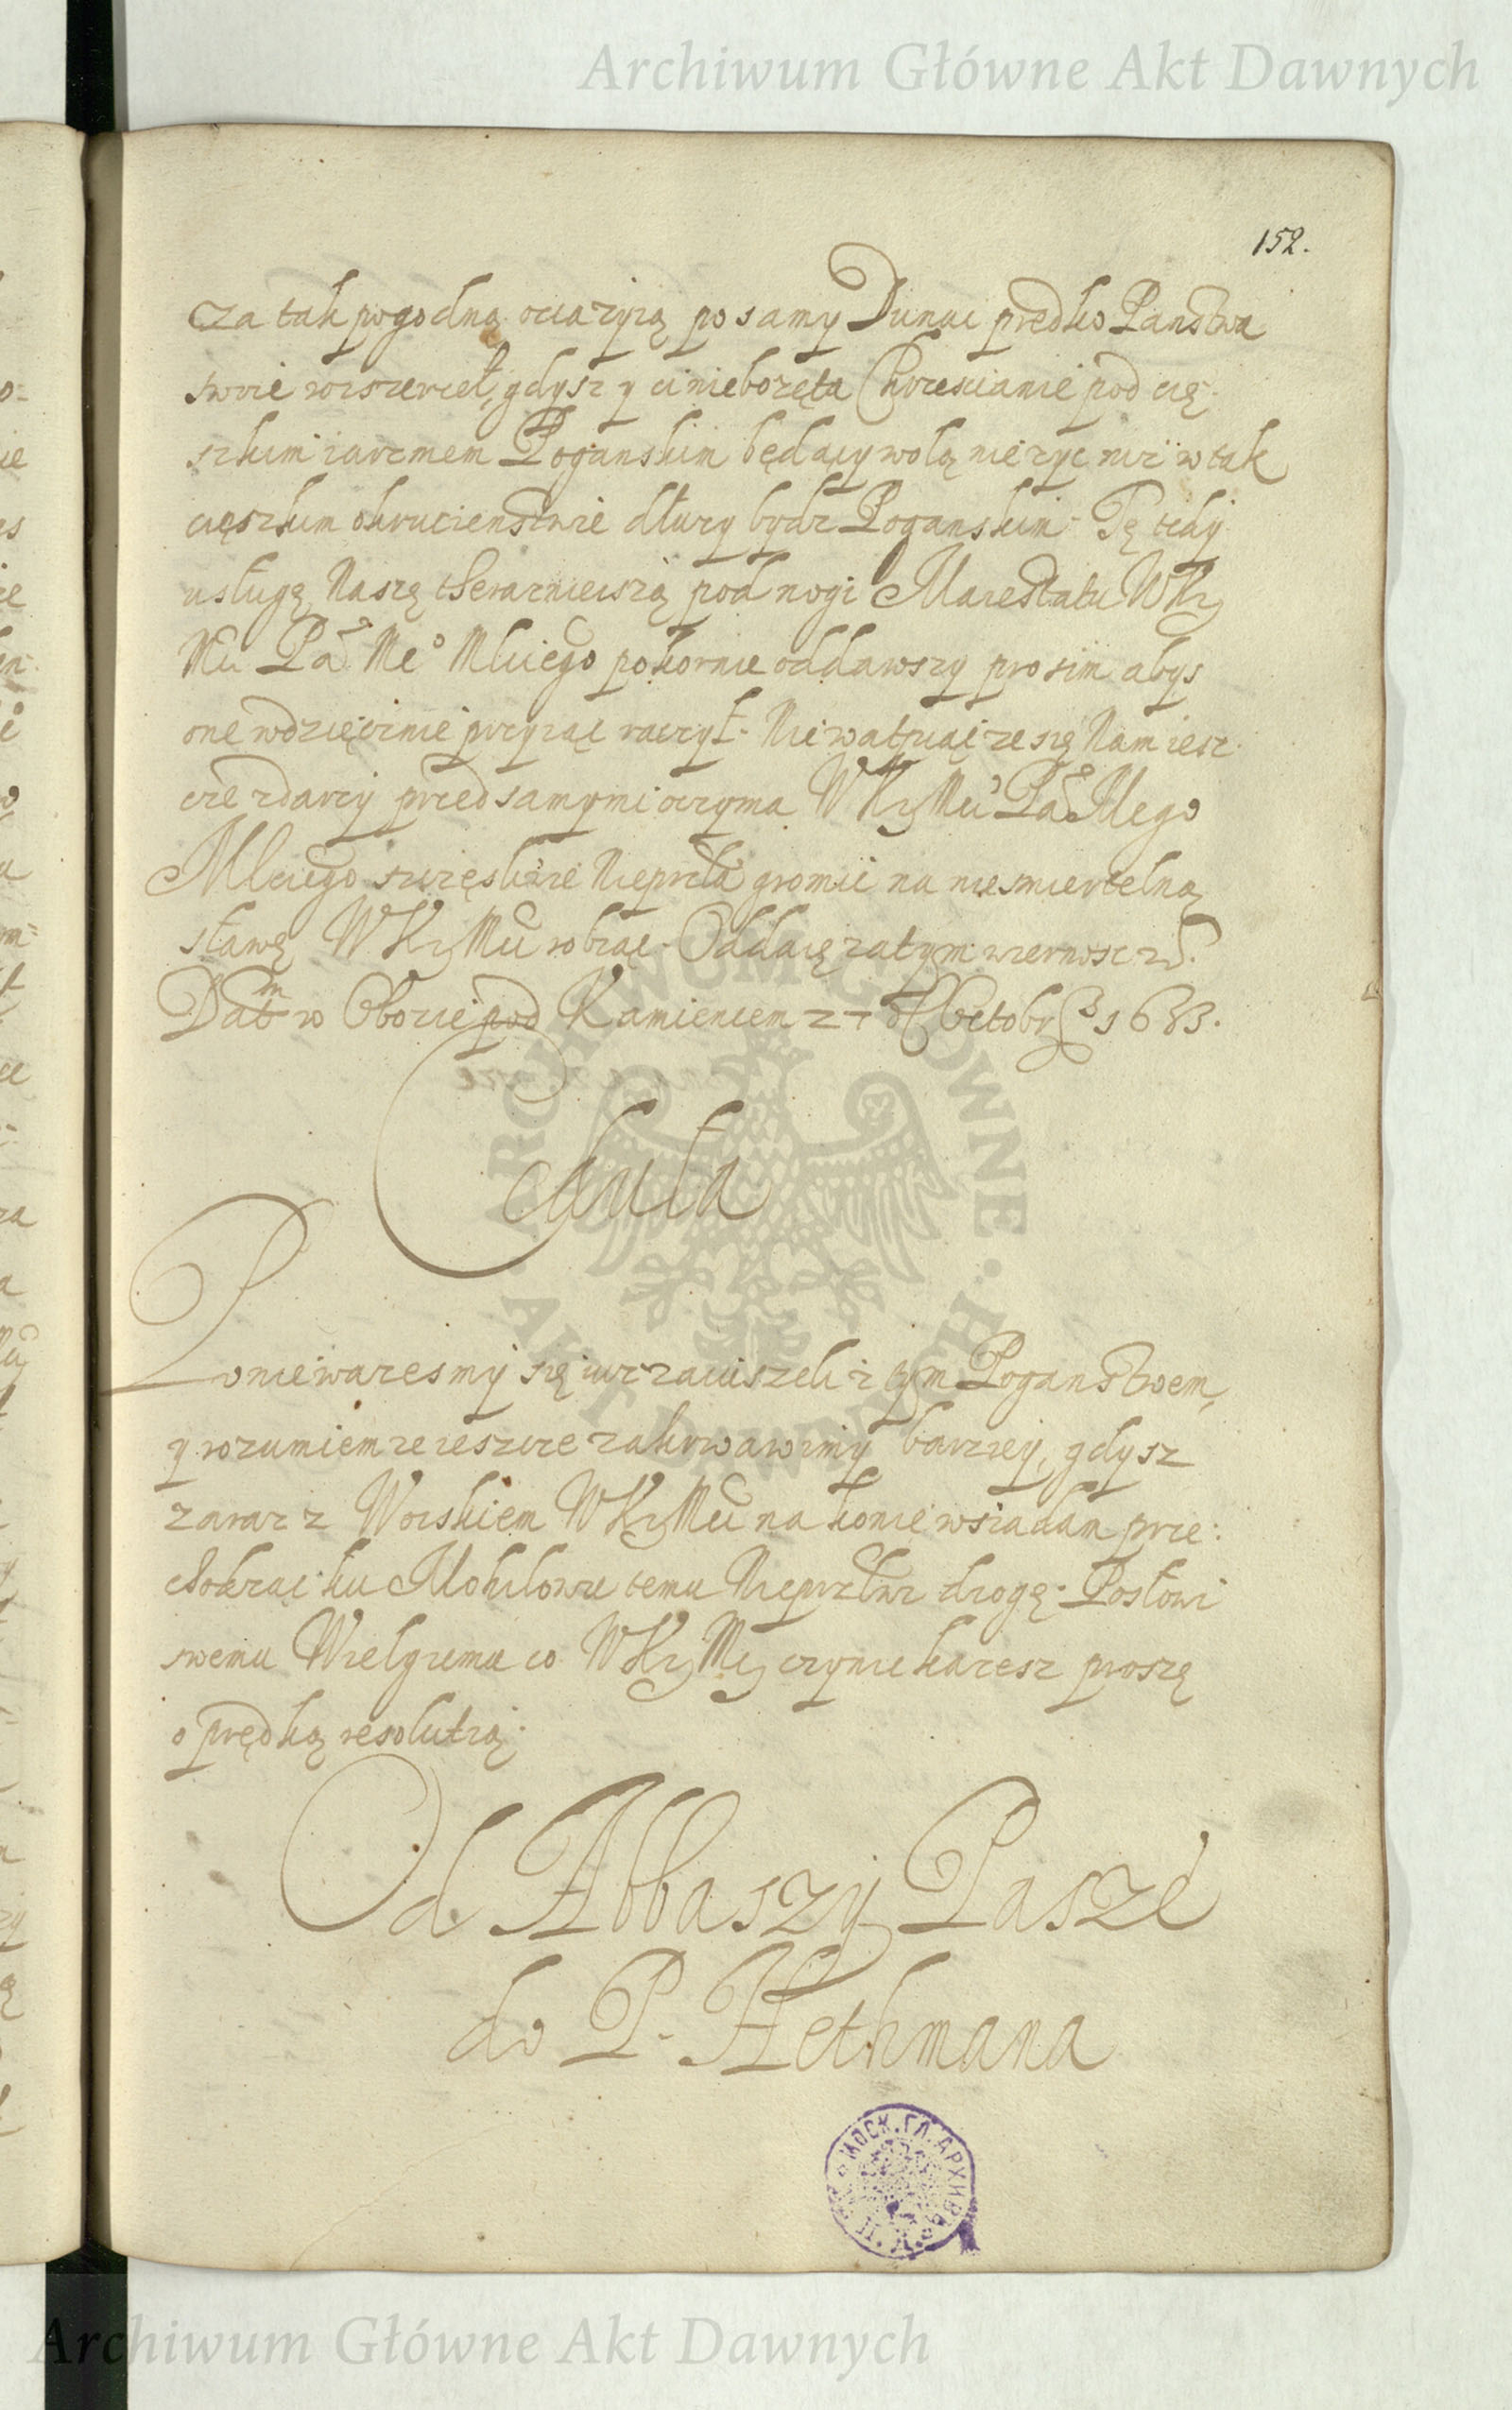 Archiwum Główne Akt Dawnych
152.
za tak pogodną occazyią po samy Dunai prędko Panstwa
swoie rozszerzeł, gdysz y ci nieboręta Chrzescianie pod cię:
szkim iarzmem Poganskim będący wolą nie zyc niz w tak
cięszkim okrucienstwie dłuzy bydz Poganskim. Tę tedy
usługę Naszę teraznieiszą pod nogi Maiestatu WKr
Mci Pa Me Mlciego pokornie oddawszy prosim abys
one wdzięcznie przyiąc raczył. Nie wątpiąc ze się Nam iesz
cze zdarzy przed samymi oczyma WKr Mci Pa Mego
Mlciego szczęsliwie Nieprzla gromic na niesmiertelną
sławę WKr Mci robiąc. Oddaię zatym wiernosc
Datm w Obozie pod Kamieniem 27 8bris 1683.
Cedula
Poniewazesmy się iuz zaiuszeli z tym Poganstwem,
y rozumiem ze ieszcze zakrwawimy barziey, gdysz
zaraz z Woiskiem WKr Mci na konie wsiadam prze:
ku Mohilowu temu Nieprzlwi drogę. Posłowi
swemu Wielgiemu co WKr Mc czynic kazesz proszę
o prędką resolutią.
Od Abbaszy Paszé
do P. Hethmana
МОСК. ГЛ. АРХИВЪ
ARCHIWUM GŁÓWNE AKT DAWNYCH
Archiwum Główne Akt Dawnych